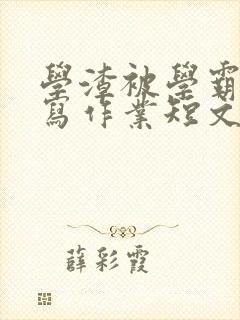 學渣被學霸
寫作業短文
薛彩霞